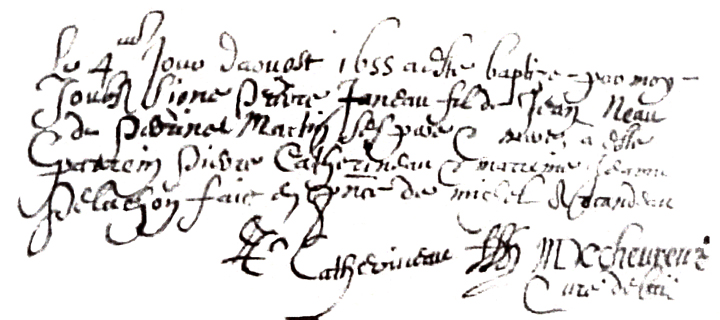 Le 4me Jour daoust 1655 a este baptize par moy
Soubz signe Pierre Janeau fils de Jean Neau
& de Perrine Martin ses pere & mere, a este
parrein Pierre Catherineau & marreine Jeanne
Delachon faict en pnce de michel Rocandeau
Catherineau M Cheureux
Curé de